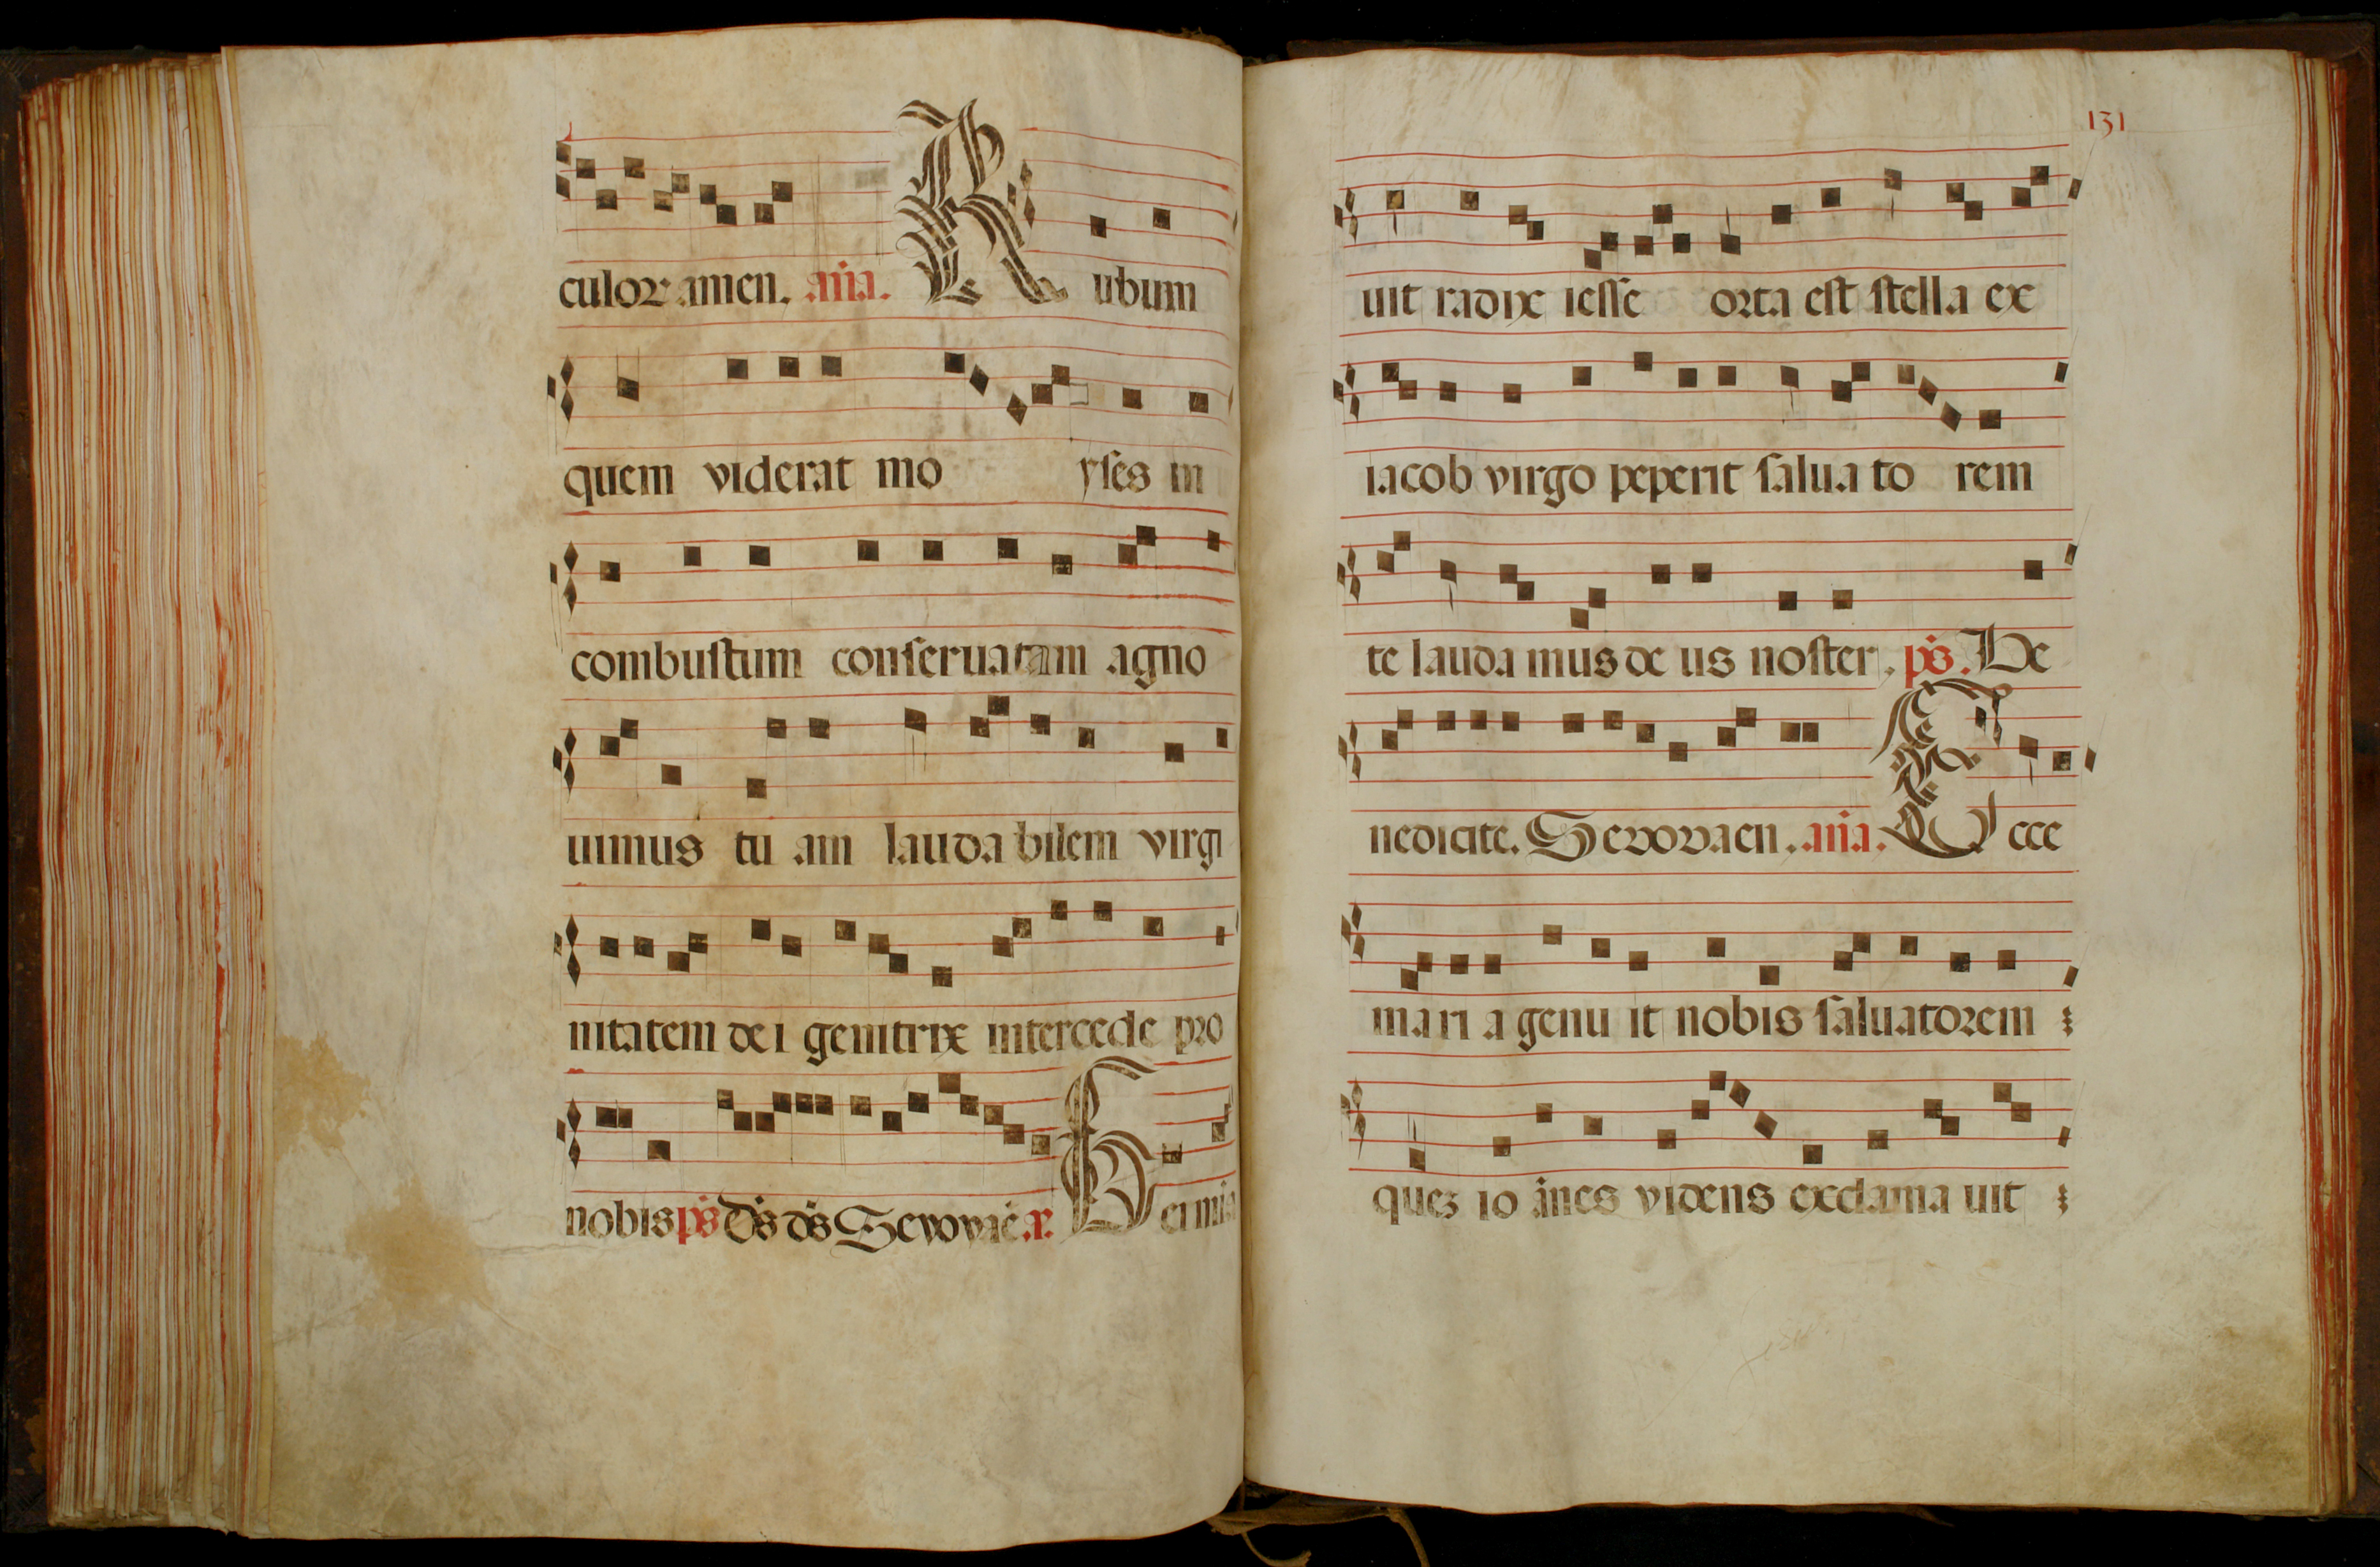 culoꝝ amen. aña. Rubum
quem viderat mo yses in
combustum conseruatam agno
uimus tu am lauda bilem virgi
nitatem dei genitrix intercede pro
nobis ps Dṡ dṡ Sevovaē. a. Germia
131
uit radix iesse orta est stella ex
iacob virgo peperit salua to rem
te lauda mus de us noster. ps. Be
nedicite. Sevovaen. aña. Ecce
mari a genu it nobis saluatorem
quez io ānes videns exclama uit